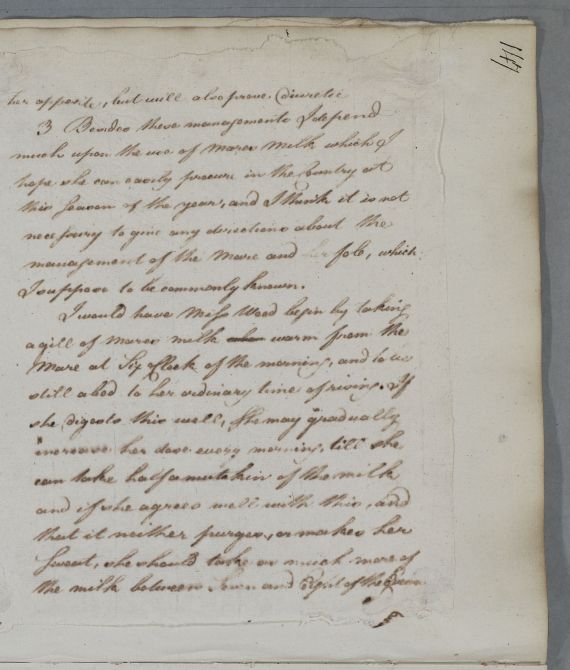 141
her appetite, but will also prove Diuretic
3 Besides these managements I depend
much upon the use of Mares Milk which I
hope she can easily procure in the Countrey at
this Season of the year, and I think it is not
necessary to give any directions about the
management of the Mare and her fole, which
I suppose to be commonly known.
I would have Miss Wood begin by taking
a gill of mares milk warm from the
Mare at Six o'Clock of the morning, and to lie
still abed to her ordinary time of rising. If
she digests this well, She may gradually
increase her dose every morning, till she
can take half a mutchkin of the milk
and if she agrees well with this, and
that it neither purges, or makes her
Sweat, she should take as much more of
the milk between Seven and Eight of the